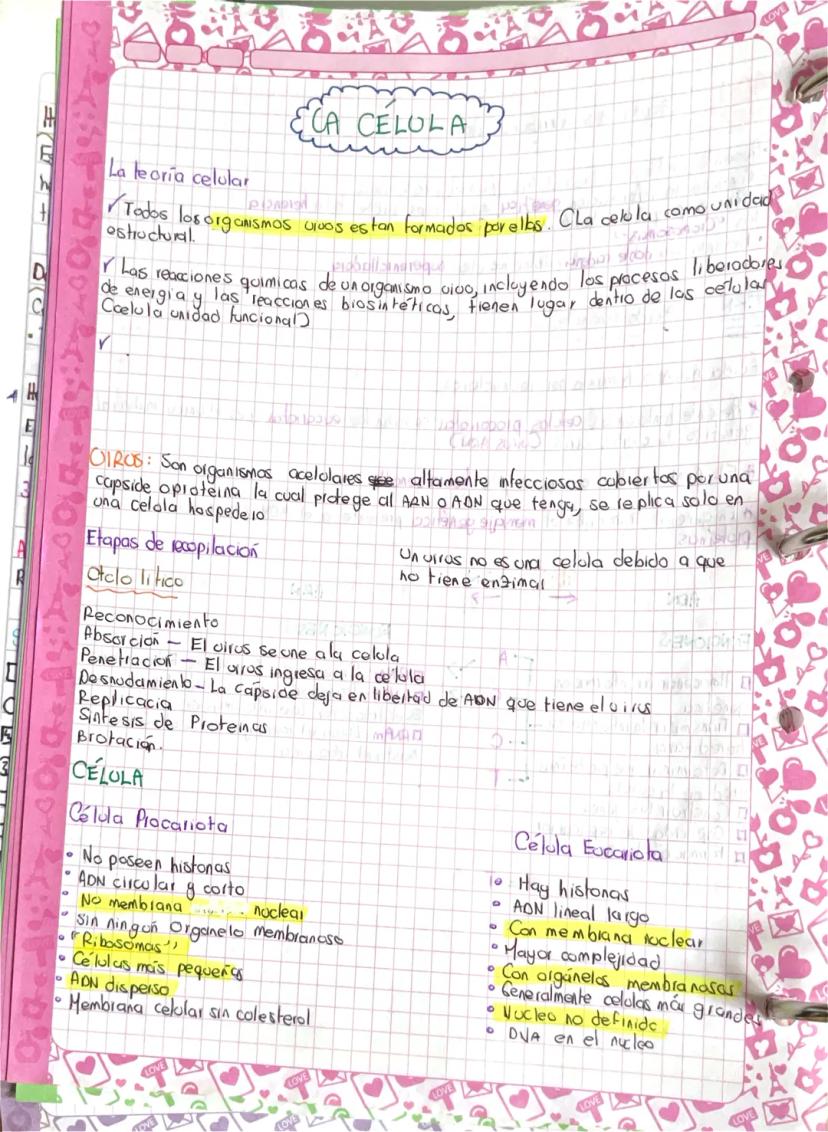 LA CÉLULA
La teoría celular
✓ Todos los organismos vivos estan formados por ellas. (La celula como unidad
estructural.
✓ Las reacciones quimicas de un organismo vivo, incluyendo los procesos liberadores
de energia y las reacciones biosintéticas, tienen lugar dentro de las celulas
(celula unidad funcional)
✓
VIRUS: Son organismos acelulares altamente infecciosas cubiertos por una
capside o proteina la cual protege al ARN o ADN que tenga, se replica solo en
una celula hospedero
Etapas de recopilación
Un virus no es una celula debido a que
no tiene enzimas
Ciclo litico
Reconocimiento
Absorción – El virus se une a la celula
Penetracion – El virus ingresa a la célula
Desnudamiento – La cápside deja en libertad de ADN que tiene el virus
Replicacia
Sintesis de Proteinas
Brotación.
CÉLULA
Célula Procariota
• No poseen histonas
• ADN circular y corto
• No membrana nuclear
• Sin ningún Organelo membranoso
• "Ribosomas"
• Células más pequeñas
• ADN disperso
• Membrana celular sin colesterol
Célula Eucariota
• Hay histonas
• ADN lineal largo
• Con membrana nuclear
• Mayor complejidad
• Con orgánelos membranosos
• Generalmente celulas más grandes
• Nucleo no definido
• DNA en el nucleo